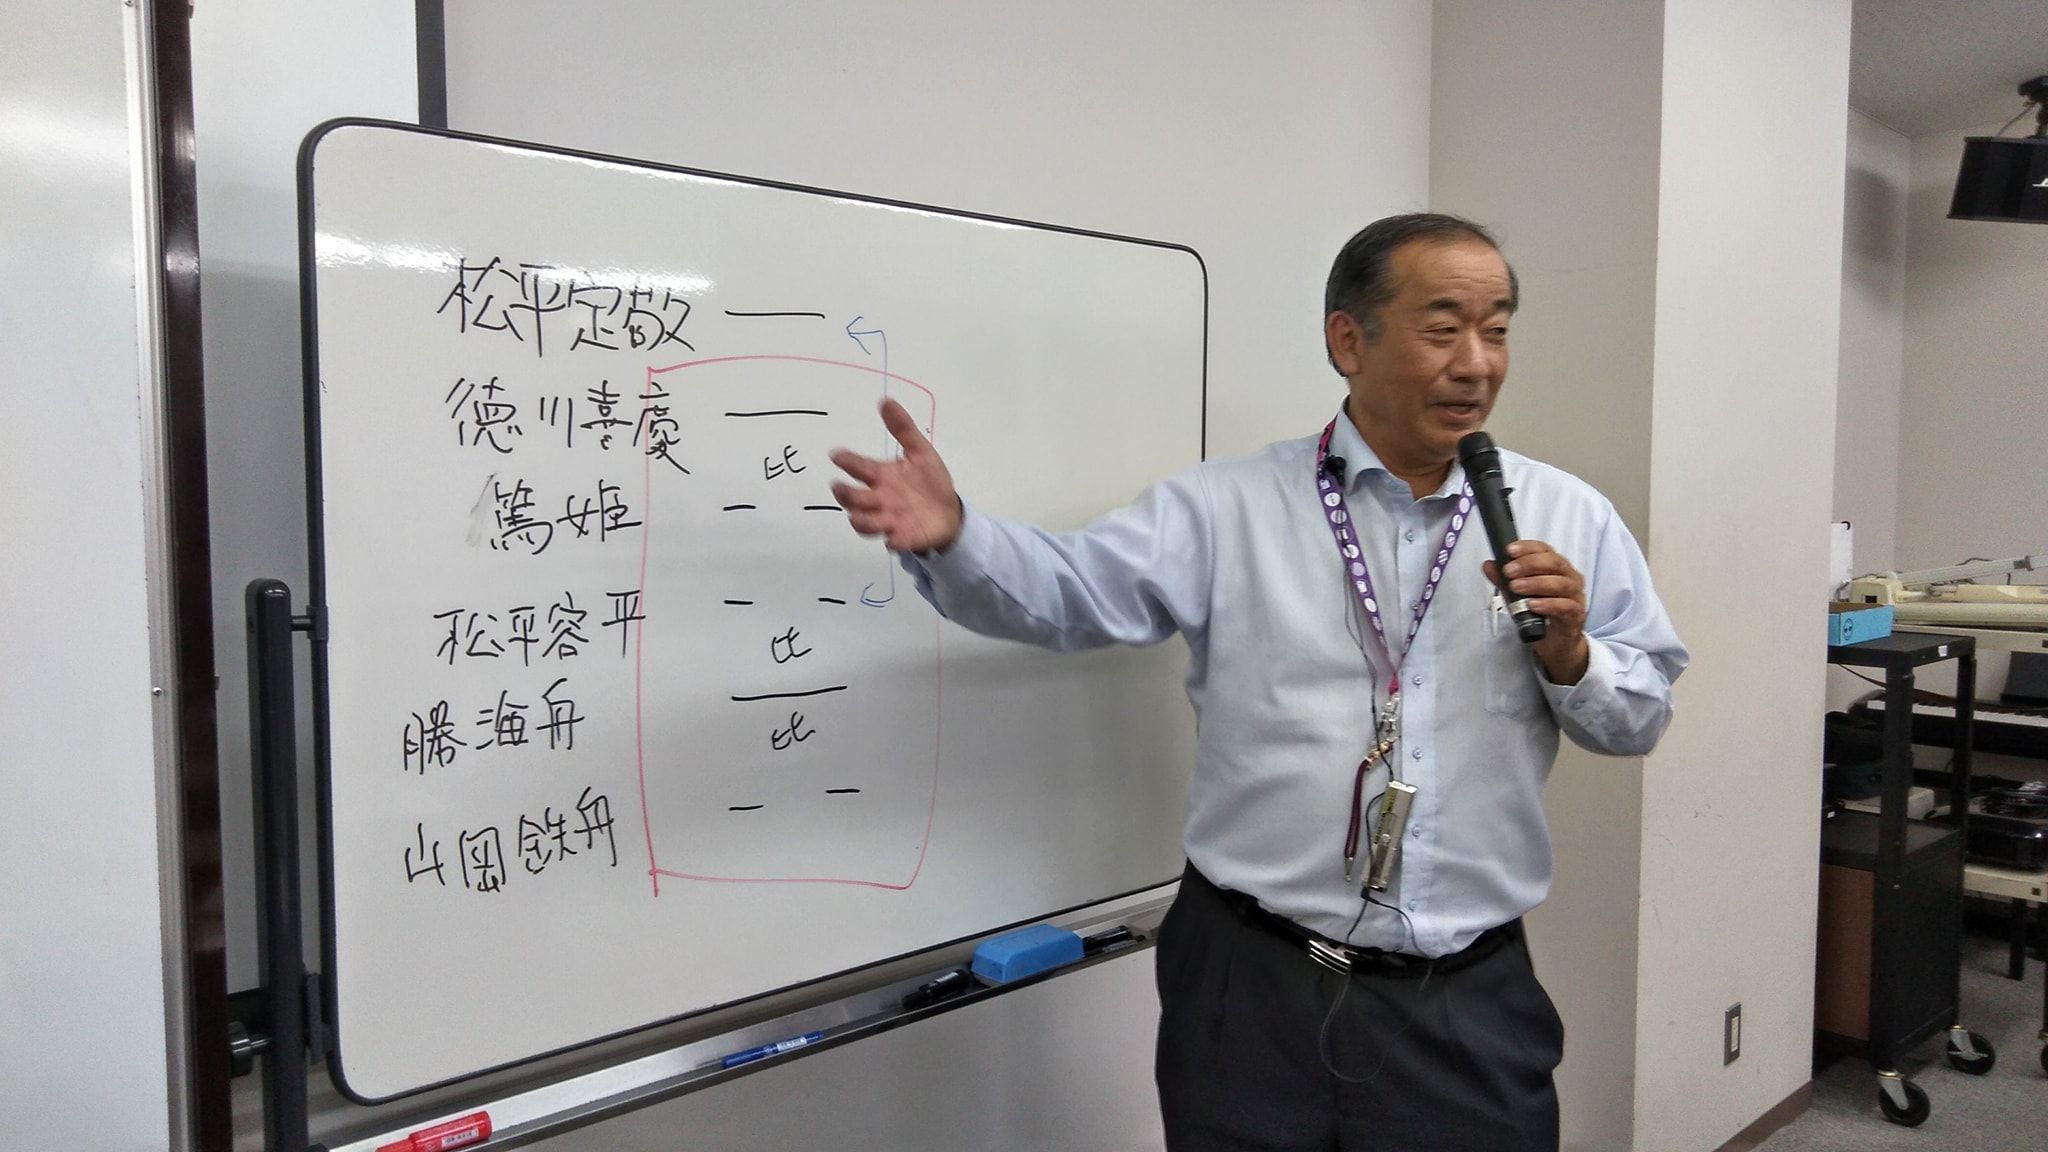 松平定敬
徳川喜慶
比
篤姫
松平容平
比
勝海舟
比
山岡鉄舟